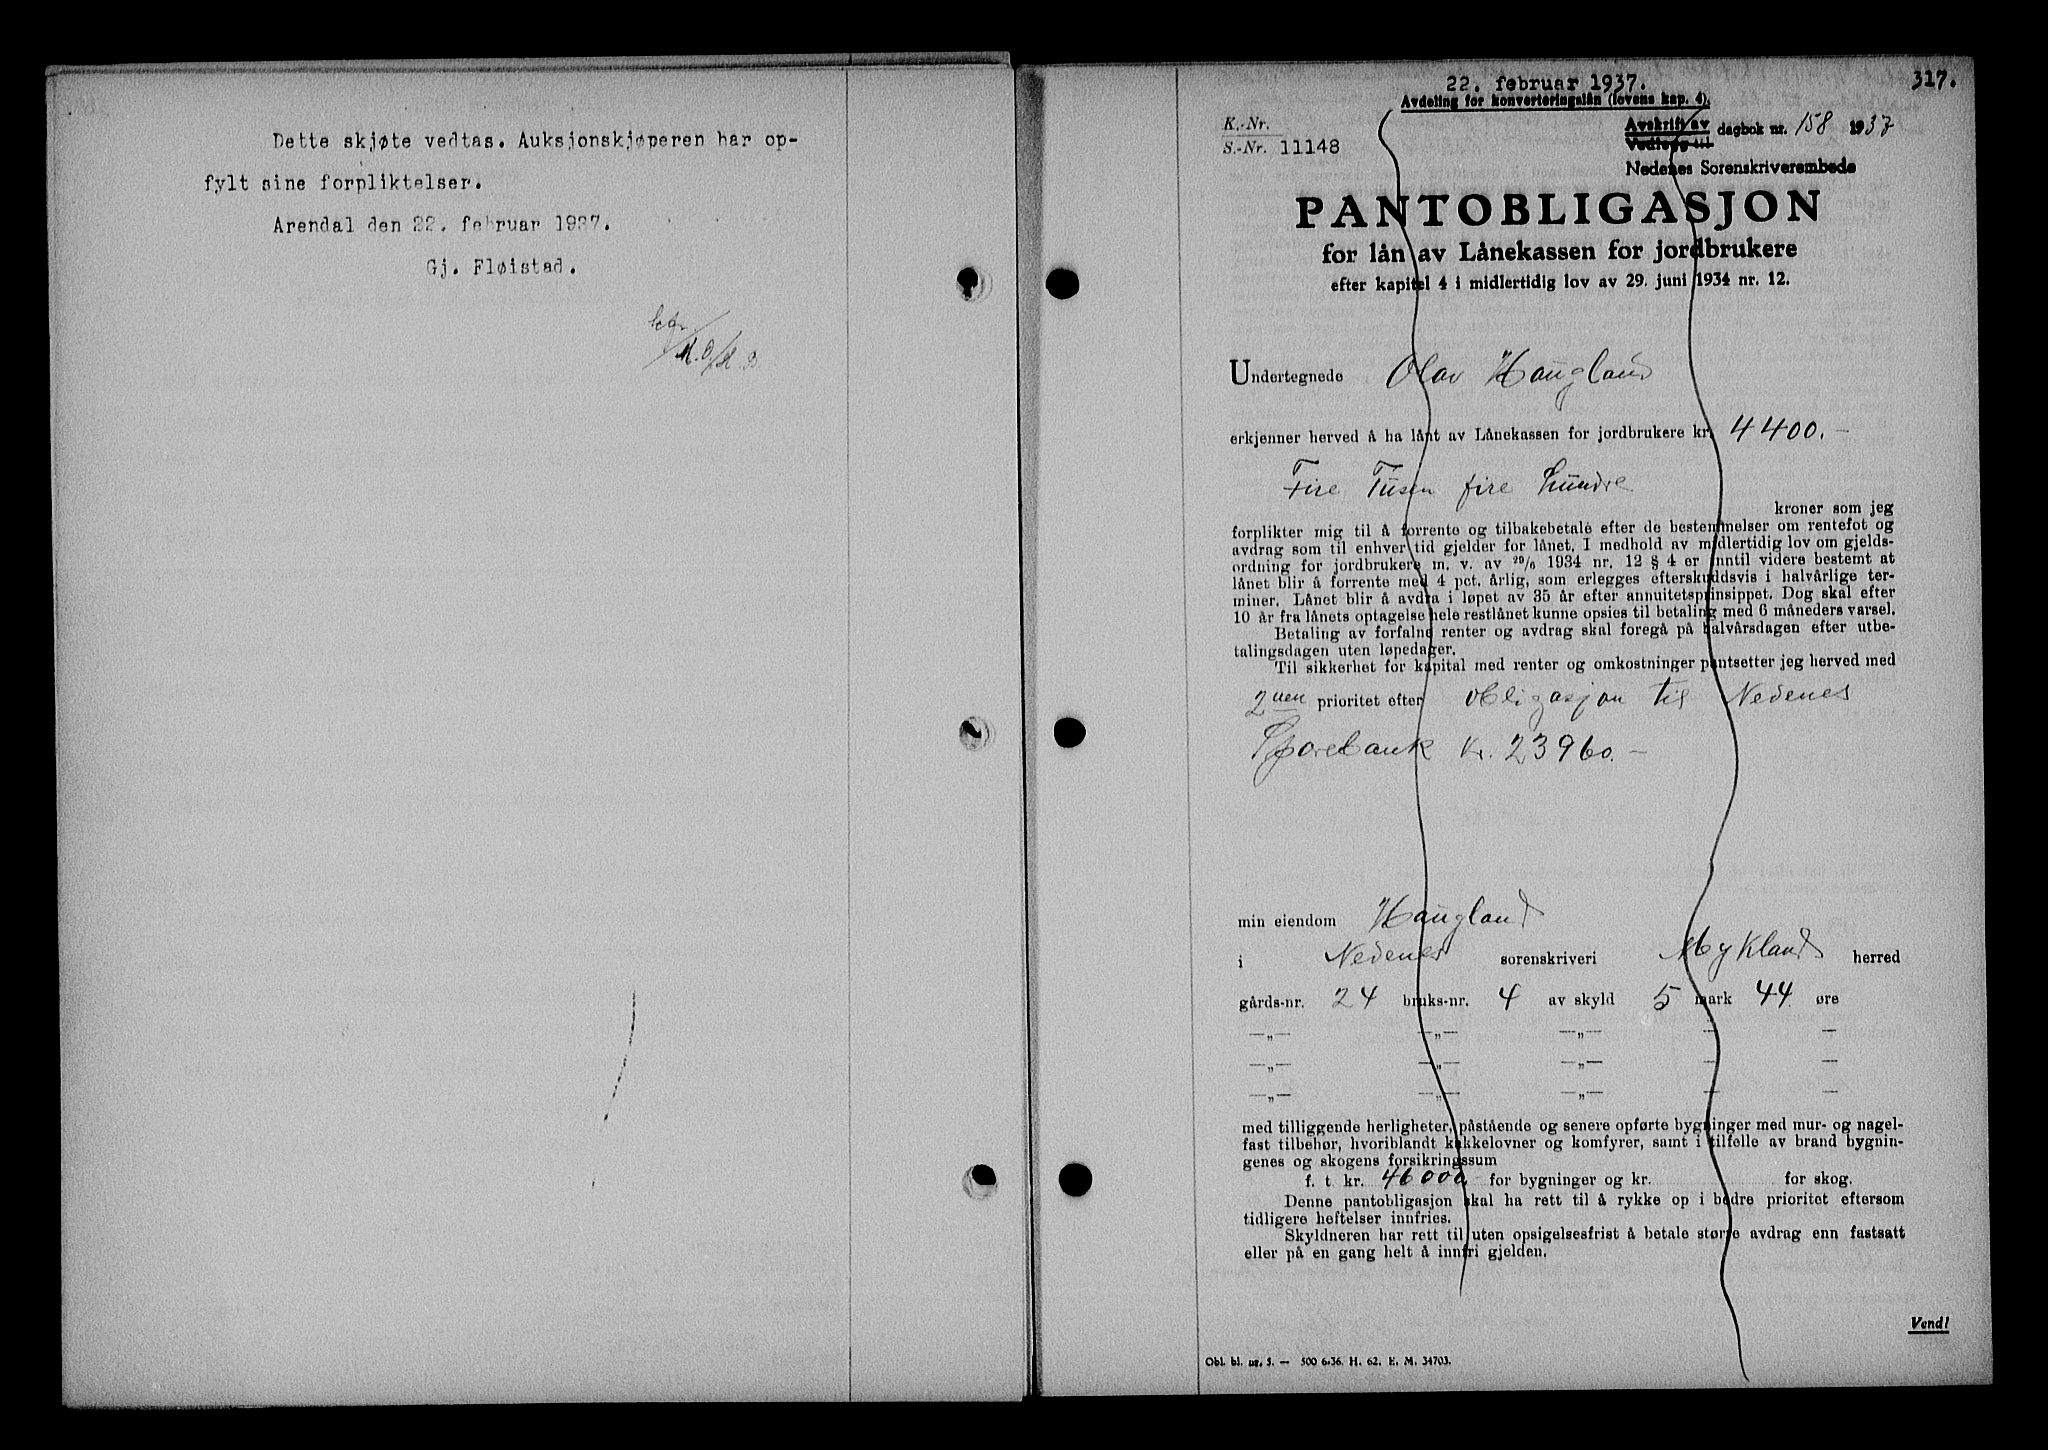 Dette skjøte vedtas. Auksjonskjøperen har op-
fylt sine forpliktelser.
Arendal den 22. februar 1937.
Gj. Fløistad.
317.
22. februar 1937.
Avdeling for konverteringslån (lovens kap. 4).
K.-Nr.
S.-Nr. 11148
Avskrift av
Vedlegg til
dagbok nr. 158 1937
Nedenes Sorenskriverembede
PANTOBLIGASJON
for lån av Lånekassen for jordbrukere
efter kapitel 4 i midlertidig lov av 29. juni 1934 nr. 12.
Undertegnede Olav Haugland
erkjenner herved å ha lånt av Lånekassen for jordbrukere kr. 4400.-
Fire Tusen fire hundre
kroner som jeg
forplikter mig til å forrente og tilbakebetale efter de bestemmelser om rentefot og
avdrag som til enhver tid gjelder for lånet. I medhold av midlertidig lov om gjelds-
ordning for jordbrukere m. v. av 29/6 1934 nr. 12 § 4 er inntil videre bestemt at
lånet blir å forrente med 4 pct. årlig, som erlegges efterskuddsvis i halvårlige ter-
miner. Lånet blir å avdra i løpet av 35 år efter annuitetsprinsippet. Dog skal efter
10 år fra lånets optagelse hele restlånet kunne opsies til betaling med 6 måneders varsel.
Betaling av forfalne renter og avdrag skal foregå på halvårsdagen efter utbe-
talingsdagen uten løpedager.
Til sikkerhet for kapital med renter og omkostninger pantsetter jeg herved med
2nen prioritet efter obligasjon til Nedenes
Sparebank kr. 23960.-
min eiendom Haugland
i Nedenes sorenskriveri Mykland herred
gårds-nr. 24 bruks-nr. 4 av skyld 5 mark 44 øre
—„— —„— —„— — —
—„— —„— —„— — —
—„— —„— —„— — —
med tilliggende herligheter, påstående og senere opførte bygninger med mur- og nagel-
fast tilbehør, hvoriblandt kakkelovner og komfyrer, samt i tilfelle av brand bygnin-
genes og skogens forsikringssum
f. t. kr. 46000,- for bygninger og kr. for skog.
Denne pantobligasjon skal ha rett til å rykke op i bedre prioritet eftersom
tidligere heftelser innfries.
Skyldneren har rett til uten opsigelsesfrist å betale større avdrag enn fastsatt
eller på en gang helt å innfri gjelden.
Vend!
Obl. bl. nr. 5. — 500 6-36. H. 62. E. M. 34703.